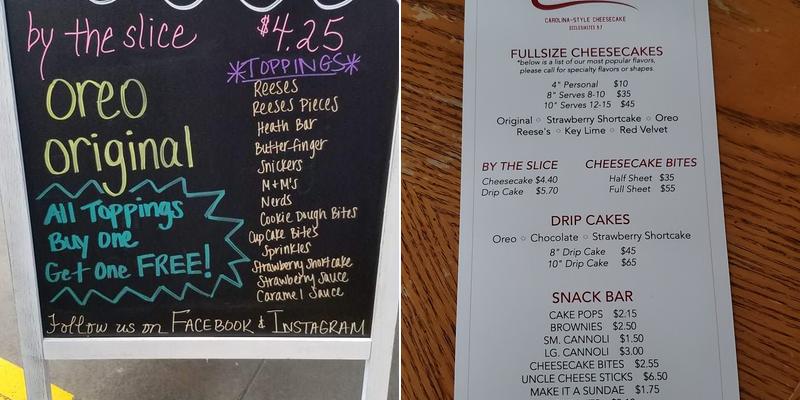 by the slice $4.25
*TOPPINGS*
Oreo
original
All Toppings
Buy One
Get One FREE!
Reeses
Reeses Pieces
Heath Bar
Butterfinger
Snickers
M+M's
Nerds
Cookie Dough Bites
Cup Cake Bites
Sprinkles
Strawberry Shortcake
Strawberry Sauce
Caramel Sauce
Follow us on FACEBOOK & INSTAGRAM
CAROLINA-STYLE CHEESECAKE
ECCLESIASTES 9:7
FULLSIZE CHEESECAKES
*below is a list of our most popular flavors,
please call for specialty flavors or shapes.
4" Personal $10
8" Serves 8-10 $35
10" Serves 12-15 $45
Original ○ Strawberry Shortcake ○ Oreo
Reese's ○ Key Lime ○ Red Velvet
BY THE SLICE
Cheesecake $4.40
Drip Cake $5.70
CHEESECAKE BITES
Half Sheet $35
Full Sheet $55
DRIP CAKES
Oreo ○ Chocolate ○ Strawberry Shortcake
8" Drip Cake $45
10" Drip Cake $65
SNACK BAR
CAKE POPS $2.15
BROWNIES $2.50
SM. CANNOLI $1.50
LG. CANNOLI $3.00
CHEESECAKE BITES $2.55
UNCLE CHEESE STICKS $6.50
MAKE IT A SUNDAE $1.75